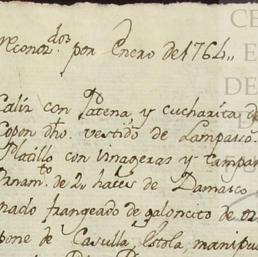 reconoz.dos por Enero de 1764,,
Caliz con Patena, y cucharita
Copon dho. vestido de Lamparo
Platillo con vinageras y campan
Ornam.to de 2 haces de Damasco
nado frangeado de galoncito de
pone de Casulla, Estola, manipu